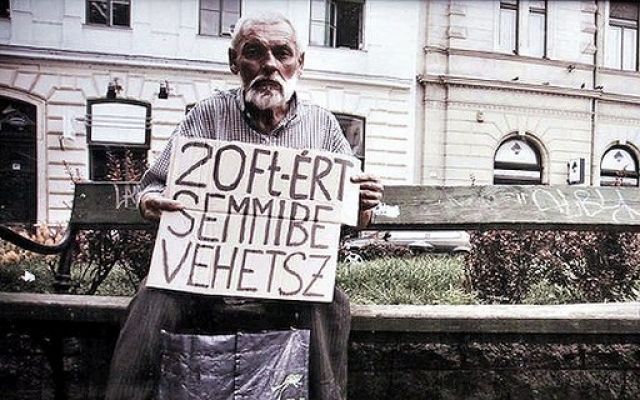 20Ft-ÉRT
SEMMIBE
VEHETSZ